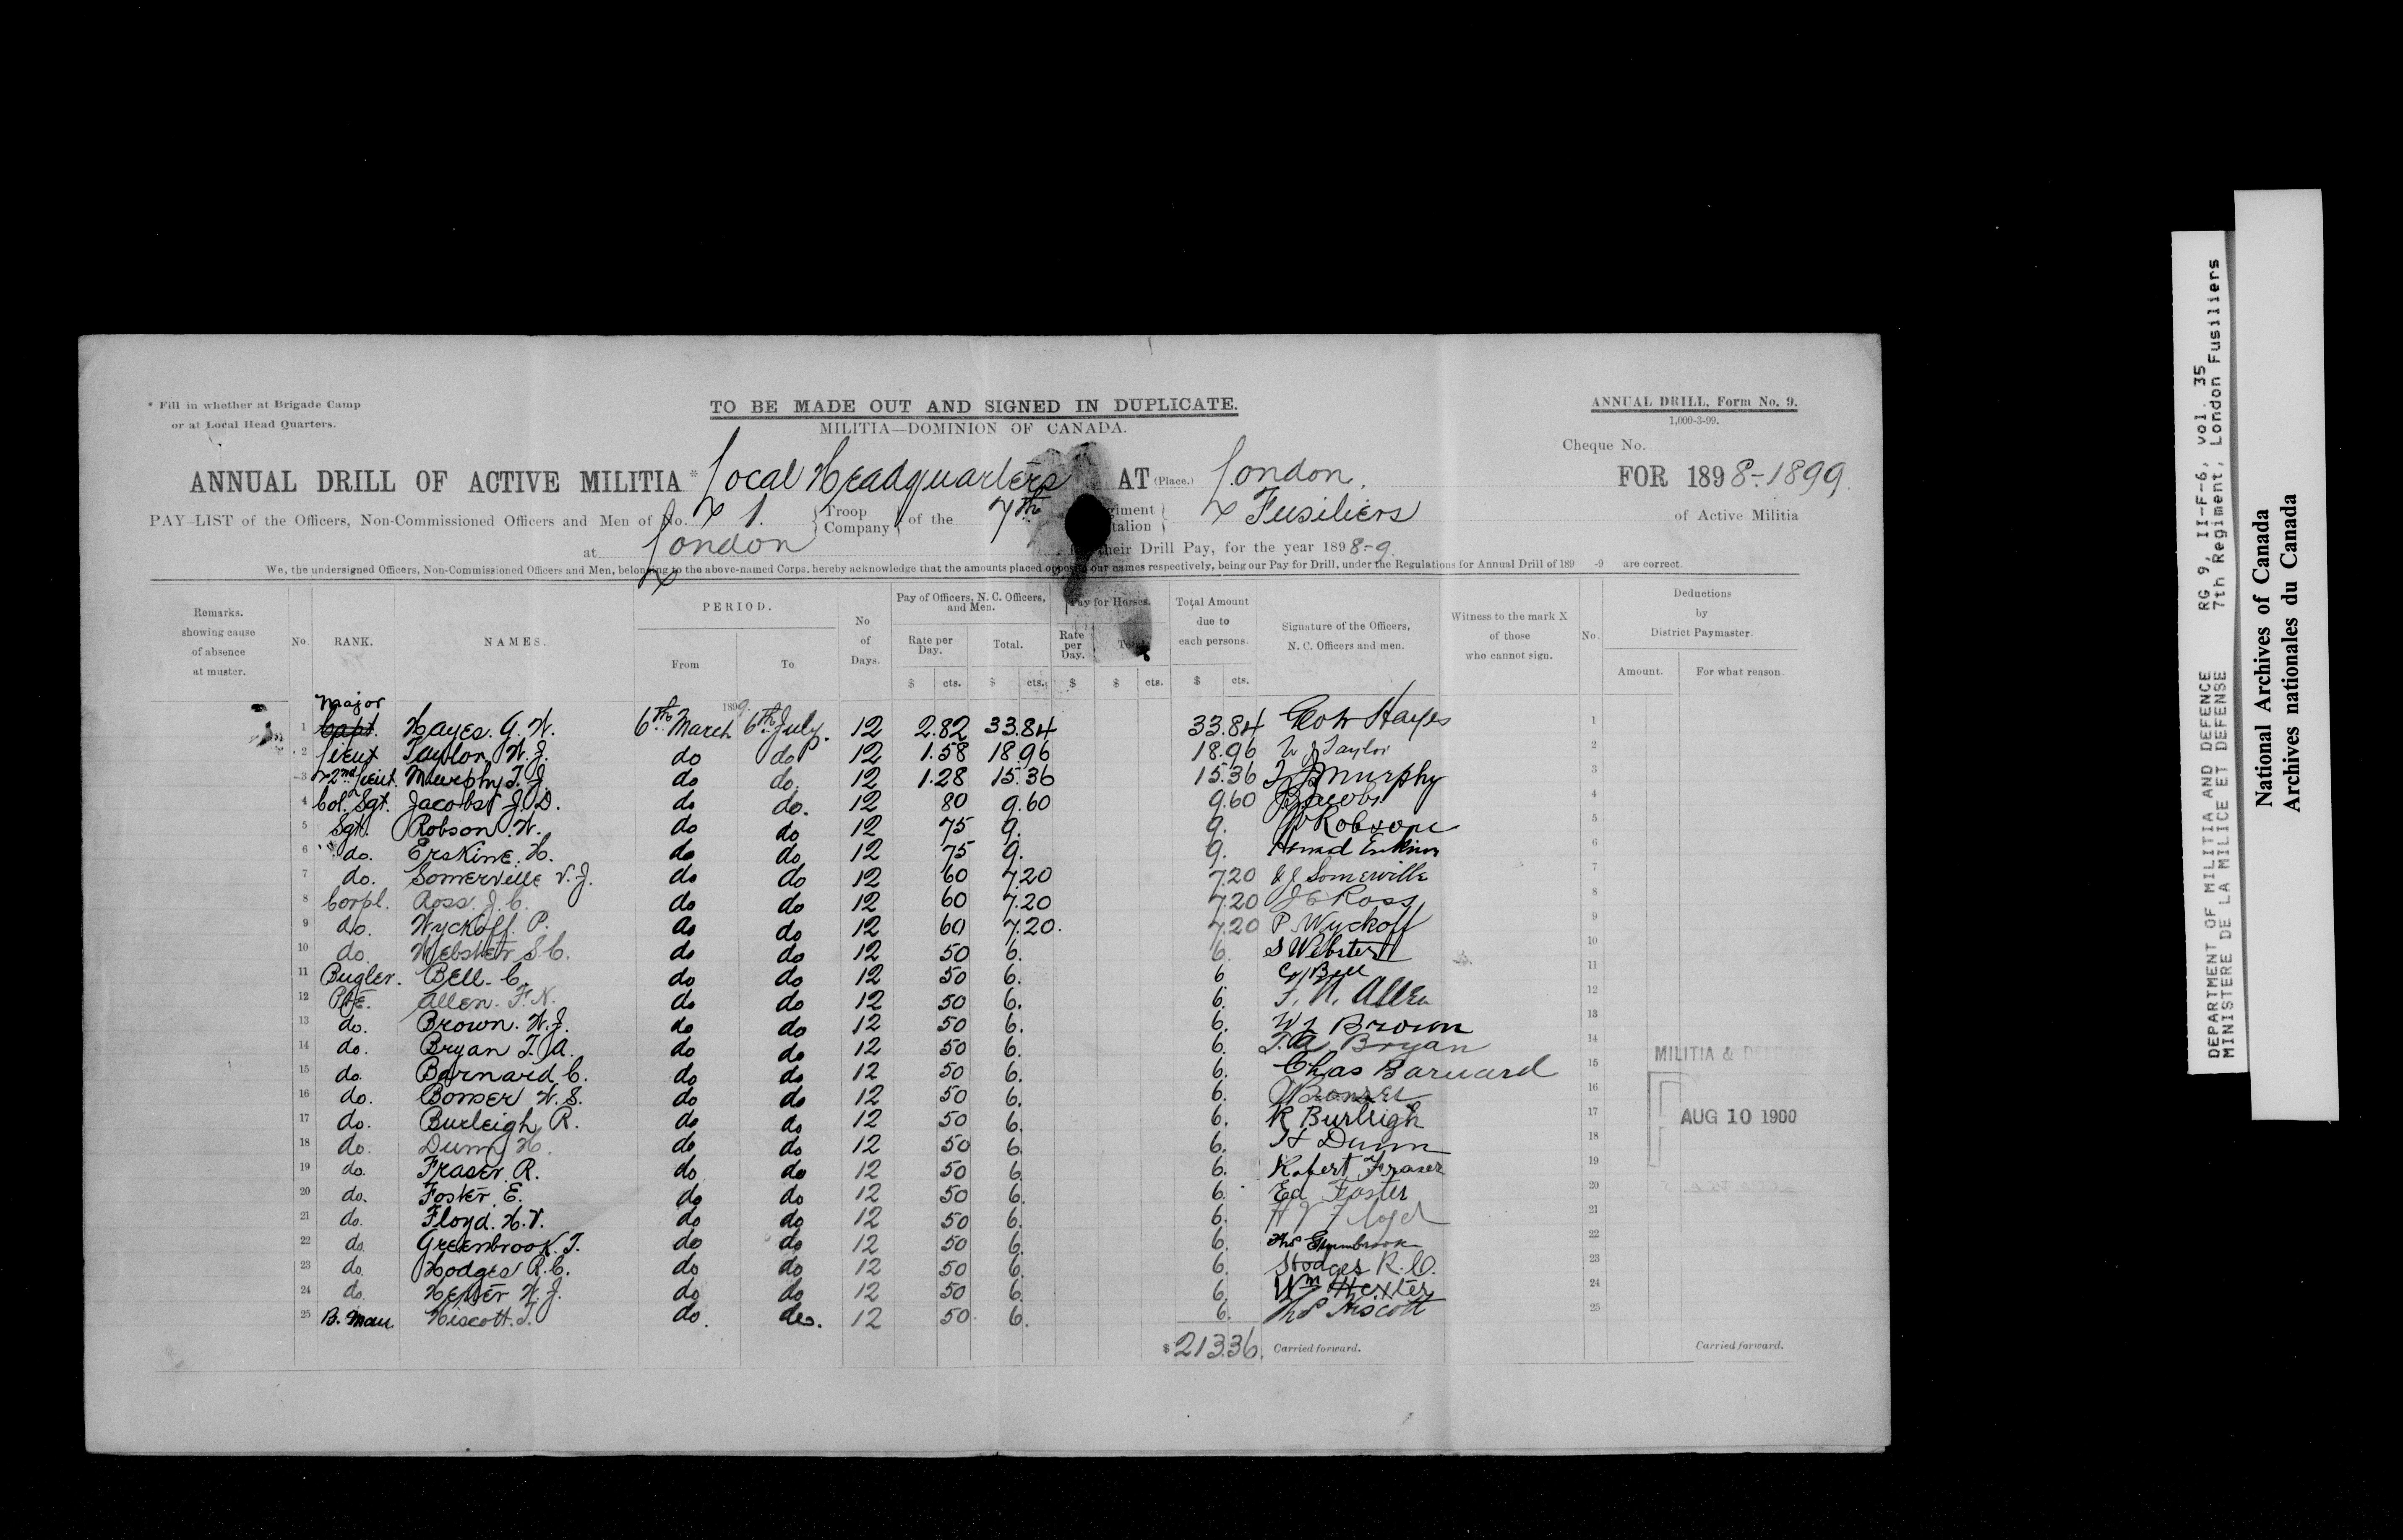 * Fill in whether at Brigade Camp
or at Local Head Quarters.
TO BE MADE OUT AND SIGNED IN DUPLICATE.
MILITIA—DOMINION OF CANADA.
ANNUAL DRILL, Form No. 9.
1,000-3-99.
Cheque No.
ANNUAL DRILL OF ACTIVE MILITIA * Local Headquarters AT (Place.) London. FOR 1898-1899.
PAY-LIST of the Officers, Non-Commissioned Officers and Men of No. 1. Troop Company of the 7th Fusiliers of Active Militia
at London their Drill Pay, for the year 1898-9.
We, the undersigned Officers, Non-Commissioned Officers and Men, belonging to the above-named Corps, hereby acknowledge that the amounts placed opposite our names respectively, being our Pay for Drill, under the Regulations for Annual Drill of 189 -9 are correct.
Remarks. showing cause of absence at muster. No. RANK. NAMES. PERIOD. From To No of Days. Pay of Officers, N. C. Officers, and Men. Rate per Day. Total. Pay for Horses. Rate per Day. Total. Total Amount due to each persons. Signature of the Officers, N. C. Officers and men. Witness to the mark X of those who cannot sign. No. Deductions by District Paymaster. Amount. For what reason
$ cts. $ cts. $ $ cts. $ cts.
Major
1899.
1 Capt. Hayes. G. W. 6th March 6th July. 12 2.82 33.84 33.84 Geo W Hayes 1
2 Lieut Taylor W. J. do do 12 1.58 18.96 18.96 W J Taylor 2
3 2nd Lieut. Murphy T. J. do do. 12 1.28 15.36 15.36 T J Murphy 3
4 Col. Sgt. Jacobs J. D. do do. 12 80 9.60 9.60 Jacobs 4
5 Sgt. Robson. W. do do 12 75 9. 9. W Robson 5
6 do. Erskine. H. do do 12 75 9. 9. Erskine 6
7 do. Somerville V. J. do do 12 60 7.20 7.20 V J Somerville 7
8 Corpl. Ross. J. C. do do 12 60 7.20 7.20 J C Ross 8
9 do. Wyckoff. P. do do 12 60 7.20. 7.20 P Wyckoff 9
10 do. Webster S. C. do do 12 50 6. 6. S Webster 10
11 Bugler. Bell. C. do do 12 50 6. 6 C Bell 11
12 Pte. Allen. F. N. do do 12 50 6. 6. F. N. Allen 12
13 do. Brown. W. J. do do 12 50 6. 6. W J Brown 13
14 do. Bryan T. A. do do 12 50 6. 6. T. A. Bryan 14
15 do. Barnard C. do do 12 50 6. 6. Chas Barnard 15
16 do. Bonser W. S. do do 12 50 6. 6. W Bonser 16
17 do. Burleigh R. do do 12 50 6. 6. R Burleigh 17
18 do. Dunn H. do do 12 50 6. 6. H Dunn 18
19 do. Fraser. R. do do 12 50 6. 6. Robert Fraser 19
20 do. Foster. E. do do 12 50 6. 6. Ed Foster 20
21 do. Floyd. H. V. do do 12 50 6. 6. H V Floyd 21
22 do. Greenbrook. T. do do 12 50 6. 6. Thos Greenbrook 22
23 do. Hodges R. C. do do 12 50 6. 6. Hodges R. C. 23
24 do. Hexter W. J. do do 12 50 6. 6. Wm Hexter 24
25 B. Man Hiscott. T. do. do. 12 50 6. 6. Thos Hiscott 25
$ 213.36. Carried forward. Carried forward.
MILITIA & DEFENCE
AUG 10 1900
DEPARTMENT OF MILITIA AND DEFENCE RG 9, II-F-6, vol. 35
MINISTERE DE LA MILICE ET DEFENSE 7th Regiment, London Fusiliers
National Archives of Canada
Archives nationales du Canada